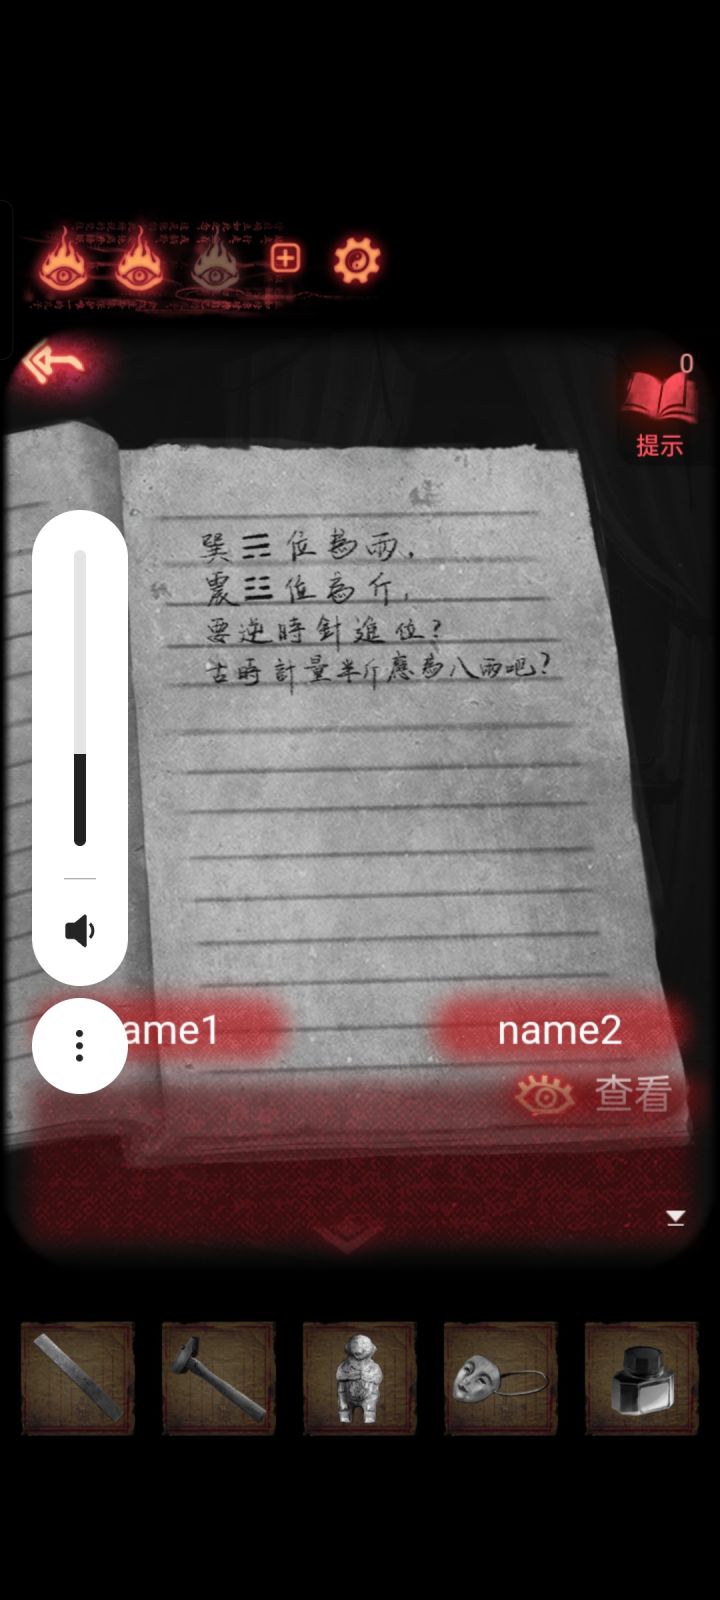 0
提示
巽☴位為兩.
震☳位為斤,
要逆時針進位?
古時計量半斤應為八兩吧?
ame1
name2
查看